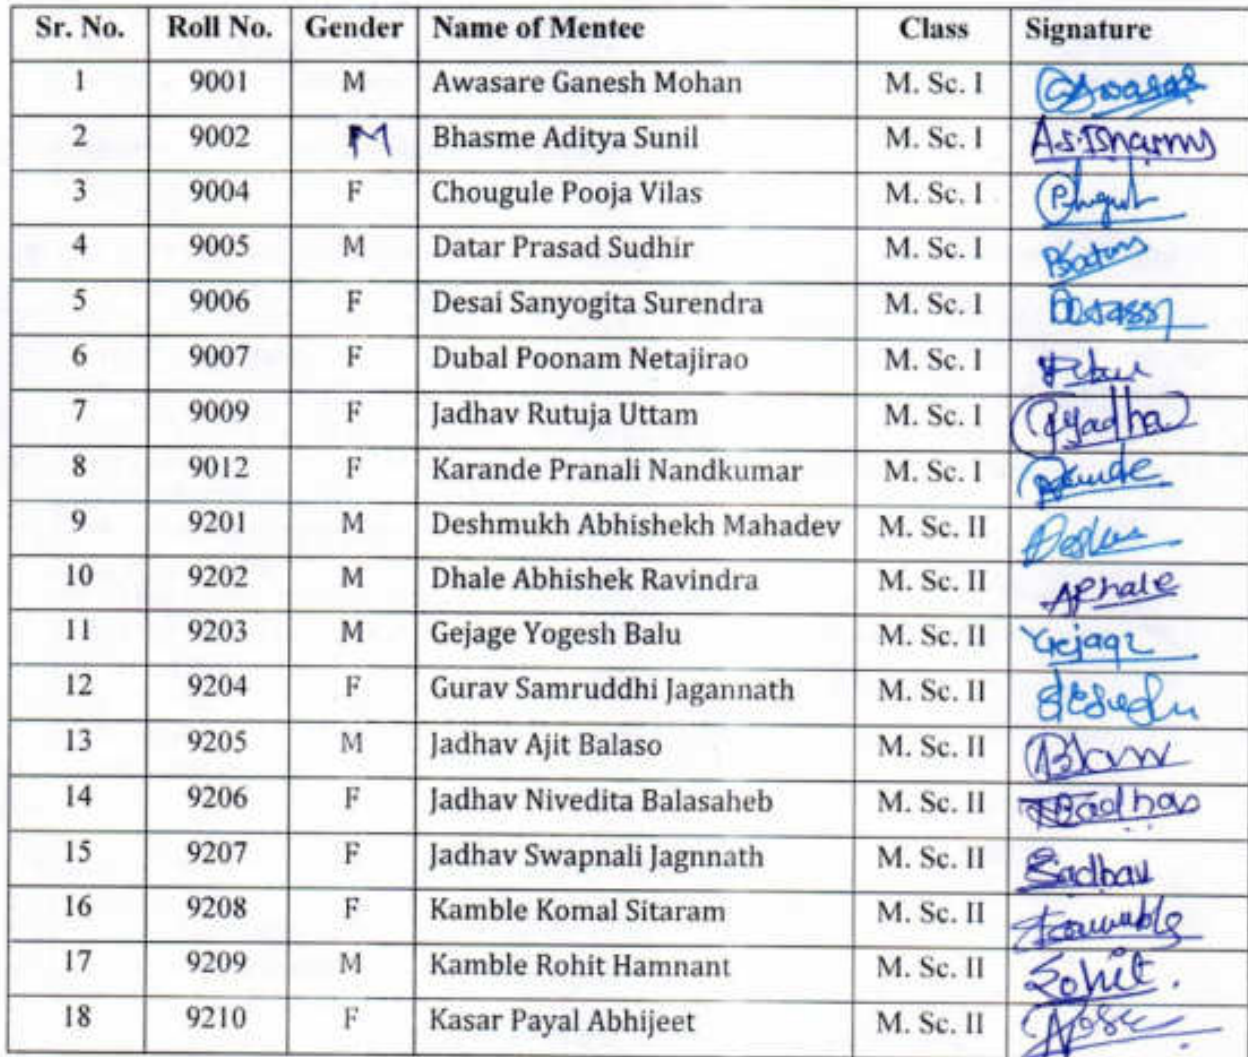 Sr. No. Roll No. Gender Name of Mentee Class Signature
1 9001 M Awasare Ganesh Mohan M. Sc. I
2 9002 M Bhasme Aditya Sunil M. Sc. I
3 9004 F Chougule Pooja Vilas M. Sc. I
4 9005 M Datar Prasad Sudhir M. Sc. I
5 9006 F Desai Sanyogita Surendra M. Sc. I
6 9007 F Dubal Poonam Netajirao M. Sc. I
7 9009 F Jadhav Rutuja Uttam M. Sc. I
8 9012 F Karande Pranali Nandkumar M. Sc. I
9 9201 M Deshmukh Abhishekh Mahadev M. Sc. II
10 9202 M Dhale Abhishek Ravindra M. Sc. II
11 9203 M Gejage Yogesh Balu M. Sc. II
12 9204 F Gurav Samruddhi Jagannath M. Sc. II
13 9205 M Jadhav Ajit Balaso M. Sc. II
14 9206 F Jadhav Nivedita Balasaheb M. Sc. II
15 9207 F Jadhav Swapnali Jagnnath M. Sc. II
16 9208 F Kamble Komal Sitaram M. Sc. II
17 9209 M Kamble Rohit Hamnant M. Sc. II
18 9210 F Kasar Payal Abhijeet M. Sc. II